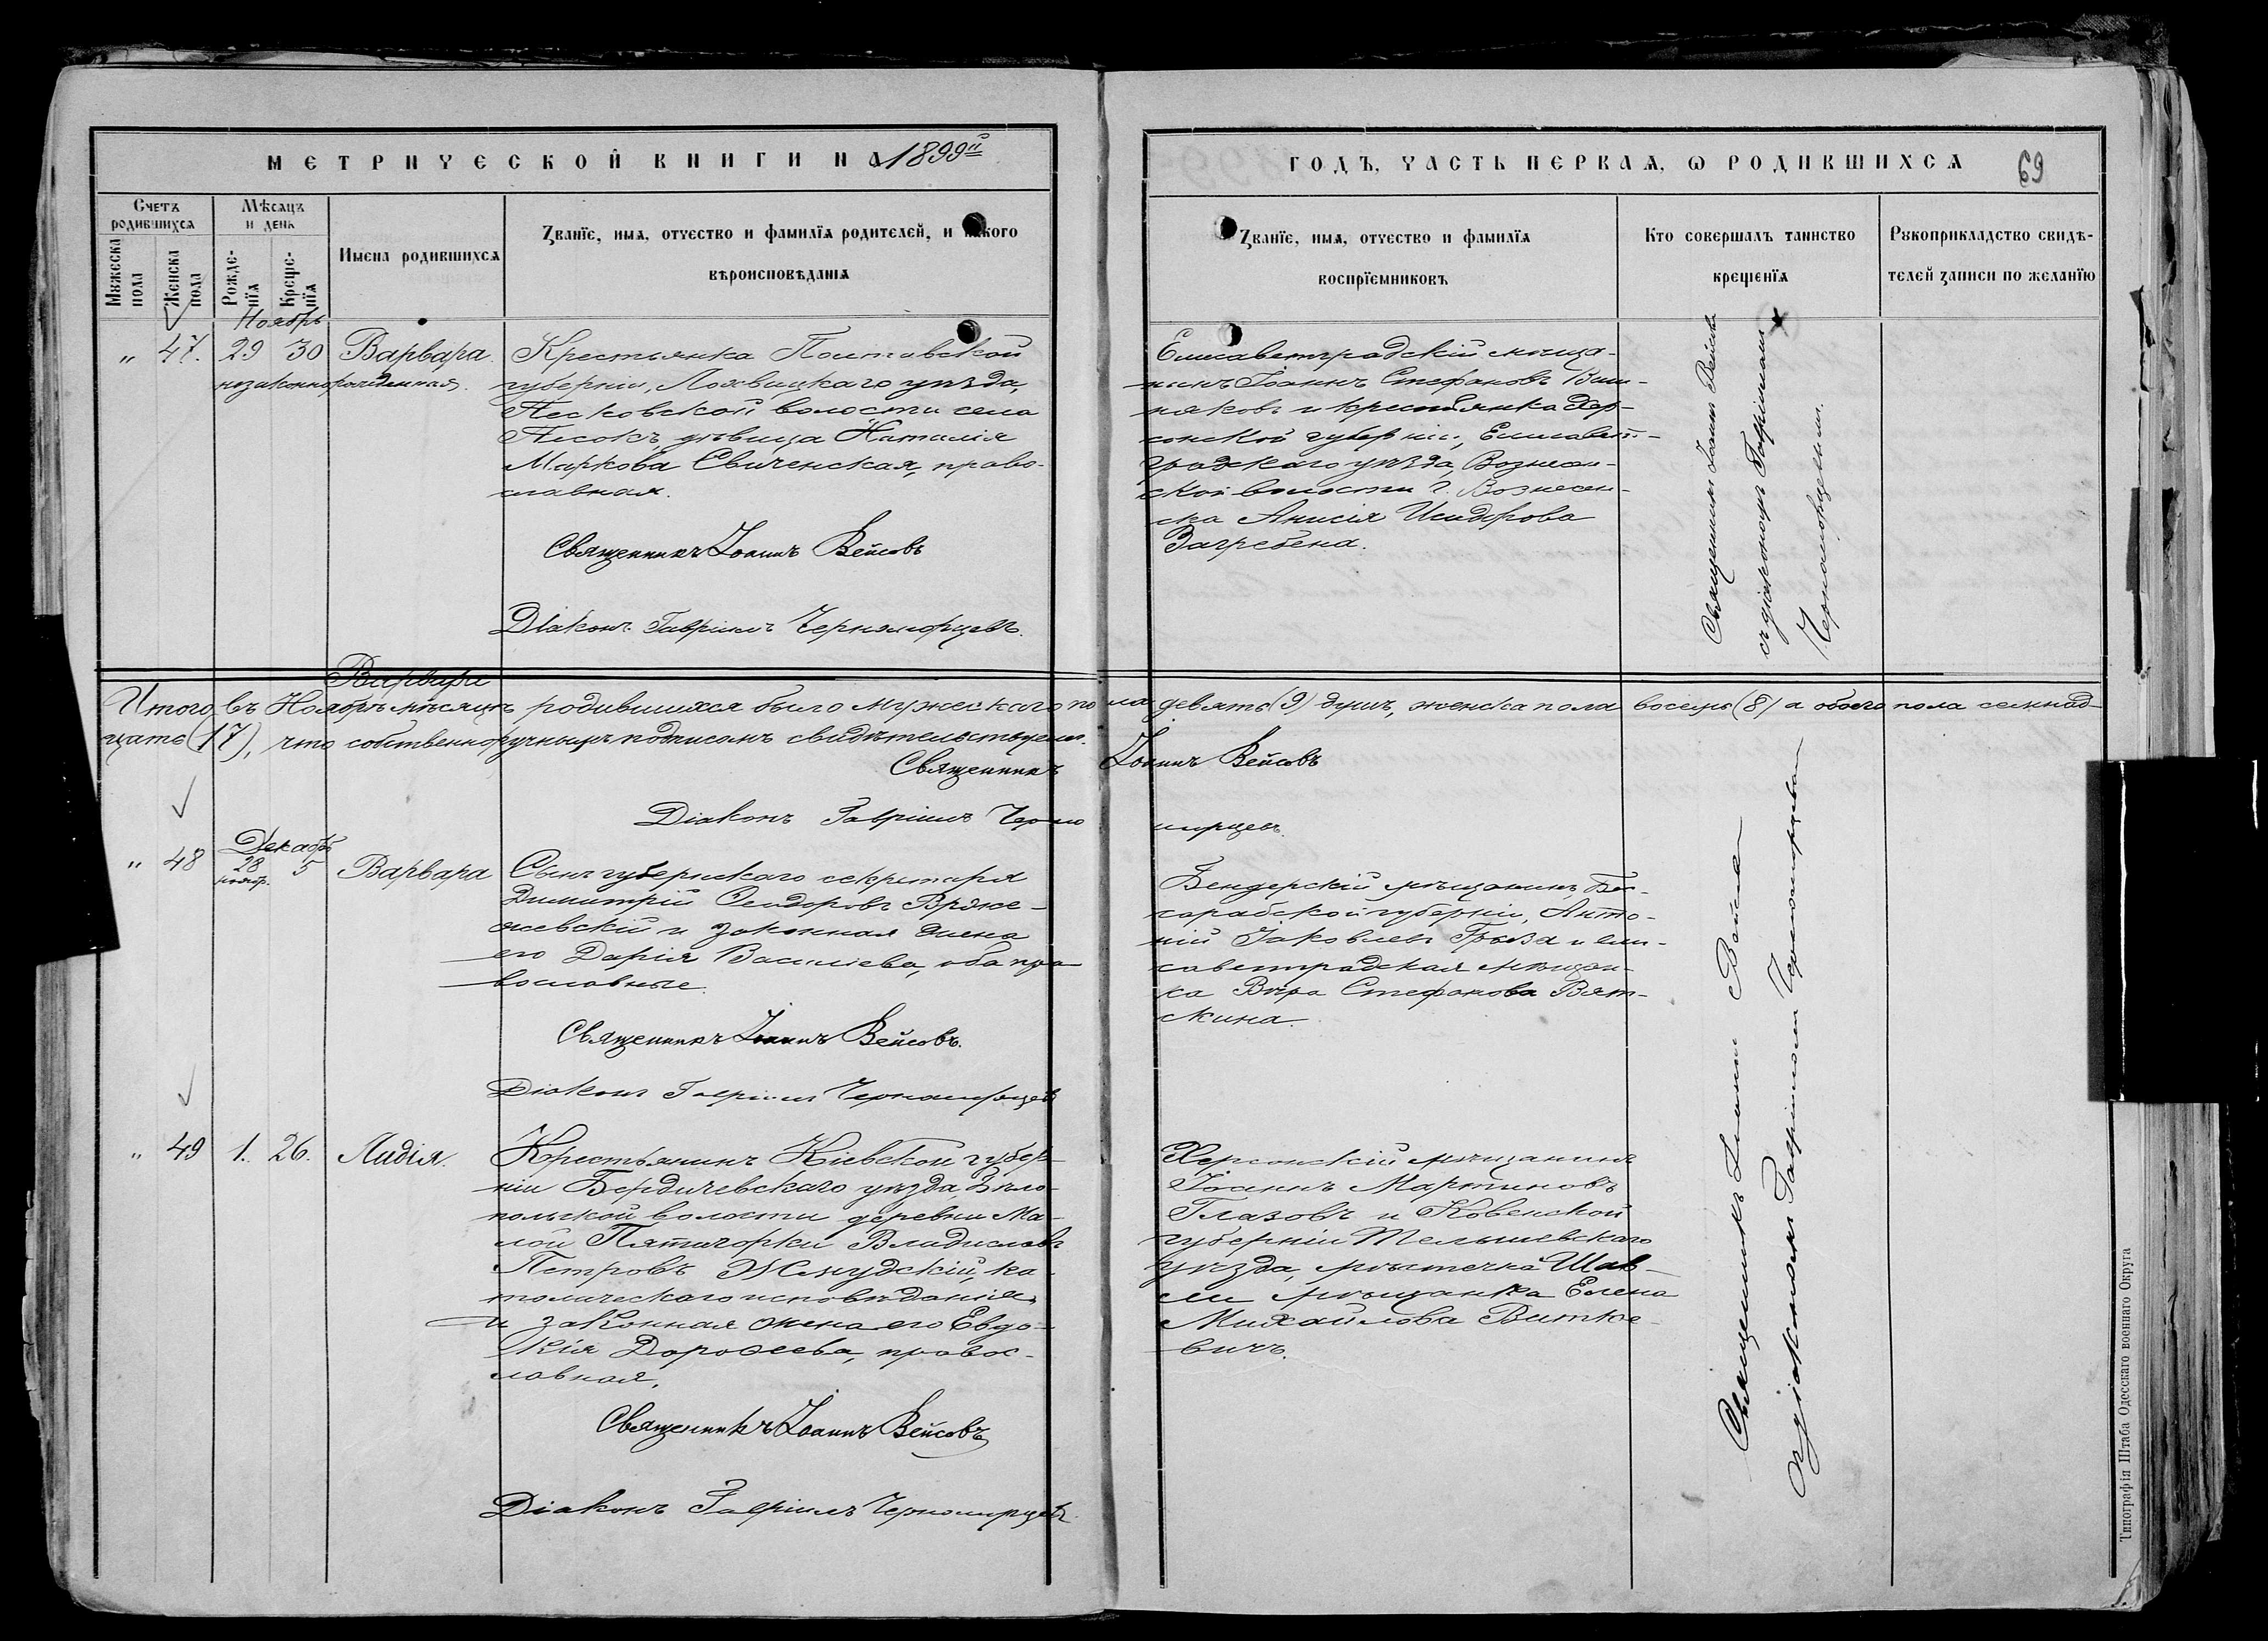 МЕТРИЧЕСКОЙ КНИГИ НА 1899й
ГОДЪ, ЧАСТЬ ПЕРВАЯ, Ѡ РОДИВШИХСЯ
69
Счетъ родившихся
Мѣсяцъ и день
Имена родившихся
Званїе, имя, отчество и фамилїя родителей, и какого
вѣроисповѣданія
Мужеска пола
Женска пола
Рожденїя
Крещенїя
Званїе, имя, отчество и фамилїя
воспрїемниковъ
Кто совершалъ таинство
крещенїя
Рукоприкладство свидѣ-
телей записи по желанїю
Ноябрь
" 47. 29 30 Варвара
незаконнорожденная.
Крестьянка Полтавской
губерніи, Лохвицкаго уѣзда,
Песковской волости села
Песокъ, дѣвица Наталія
Маркова Свиченская, право-
славная.
Священникъ Іоаннъ Вейсовъ
Діаконъ Гавріилъ Черноморцевъ.
Елисаветградскій мѣща-
нинъ Іоаннъ Стефановъ
и крестьянка Хер-
сонской губерніи, Елисавет-
градскаго уѣзда, Вознесен-
ской волости г. Вознесен-
ска Анисія Исидорова
Загребена.
Священникъ Іоаннъ Вейсовъ
съ діакономъ Гавріиломъ
Черноморцевымъ.
Варвара
Итого въ Ноябрѣ мѣсяцѣ родившихся было мужескаго пола девять (9) душъ, женска пола восемь (8) а обоего пола семнад-
цать (17), что собственноручнымъ подписомъ свидѣтельствуемъ.
Священникъ Іоаннъ Вейсовъ
Діаконъ Гавріилъ Черноморцевъ.
Декабрь
" 48 28 ноябр. 5 Варвара
Сынъ губернскаго секретаря
Димитрій Сидоровъ Врже-
жевскій и законная жена
его Дарія Василіева, оба пра-
вославные.
Священникъ Іоаннъ Вейсовъ.
Діаконъ Гавріилъ Черноморцевъ
Бендерскій мѣщанинъ, Бес-
сарабской губерніи, Анто-
ній Іаковлевъ и Ели-
саветградская мѣщан-
ка Вѣра Стефанова Вят-
кина.
" 49 1. 26. Лидія.
Крестьянинъ Кіевской губер-
ніи Бердичевскаго уѣзда, Бѣло-
польской волости деревни Ма-
лой Пятигорки Владиславъ
Петровъ Жмудскій, ка-
толическаго исповѣданія,
и законная жена его Евдо-
кія Дороѳеева, правос-
лавная.
Священникъ Іоаннъ Вейсовъ
Діаконъ Гавріилъ Черноморцевъ.
Херсонскій мѣщанинъ
Іоаннъ Мартиновъ
Глазовъ и Ковенской
губерніи Тельшевскаго
уѣзда, мѣстечка Шав-
ли мѣщанка Елена
Михайлова Витке-
вичъ.
Священникъ Іоаннъ Вейсовъ
съ діакономъ Гавріиломъ Черноморцевымъ
Типографія Штаба Одесскаго военнаго Округа